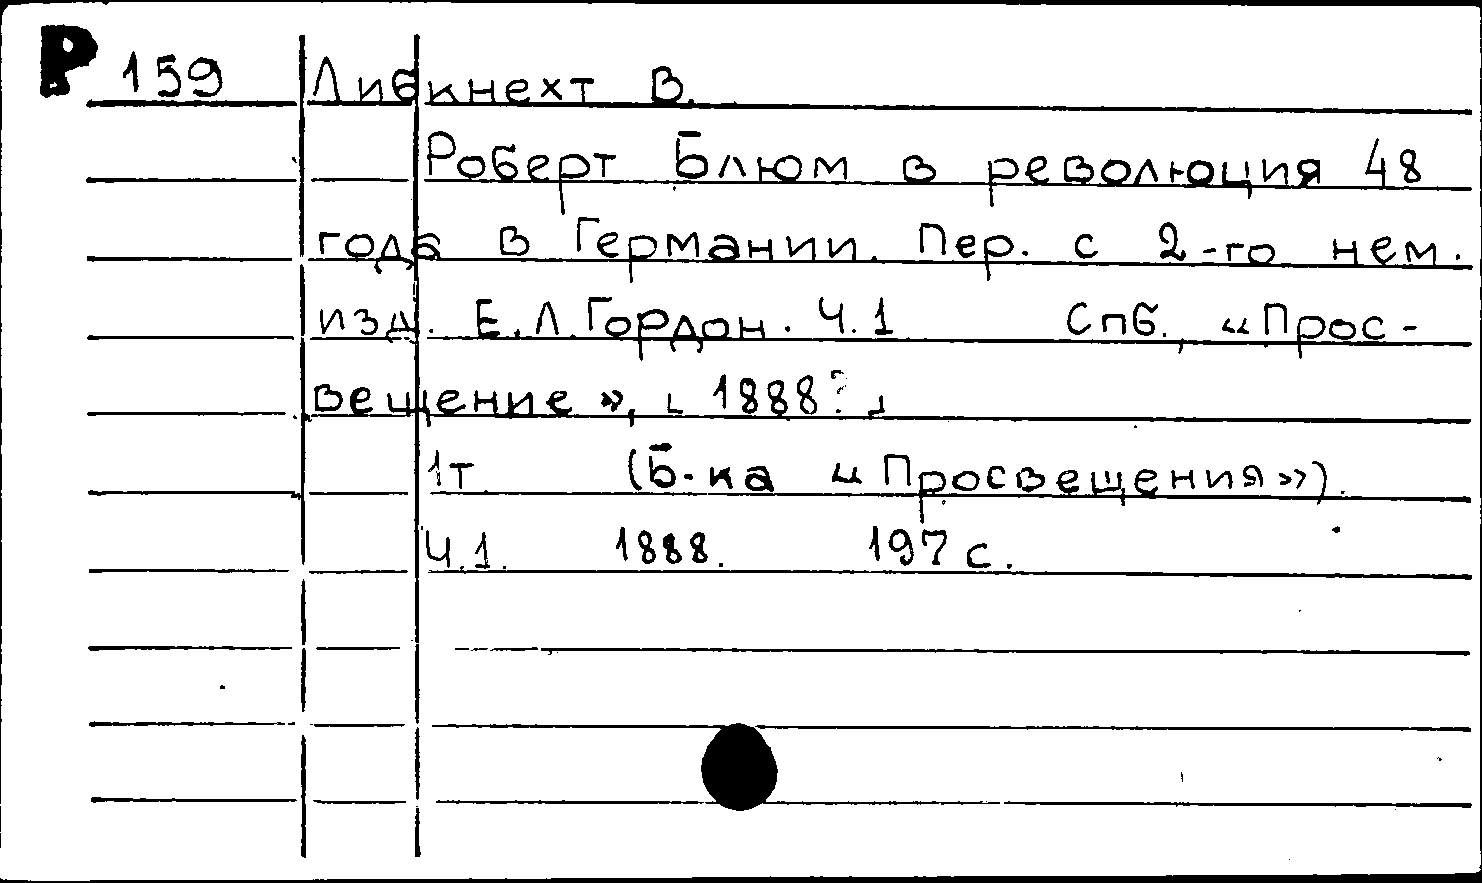 Р 159 Либкнехт В.
Роберт Блюм в революция 48
года в Германии. Пер. с 2-го нем.
изд. Е.Л.Гордон. Ч.1 Спб., «Прос-
вещение», [1888?]
1т (Б-ка «Просвещения»).
Ч.1. 1888. 197 с.